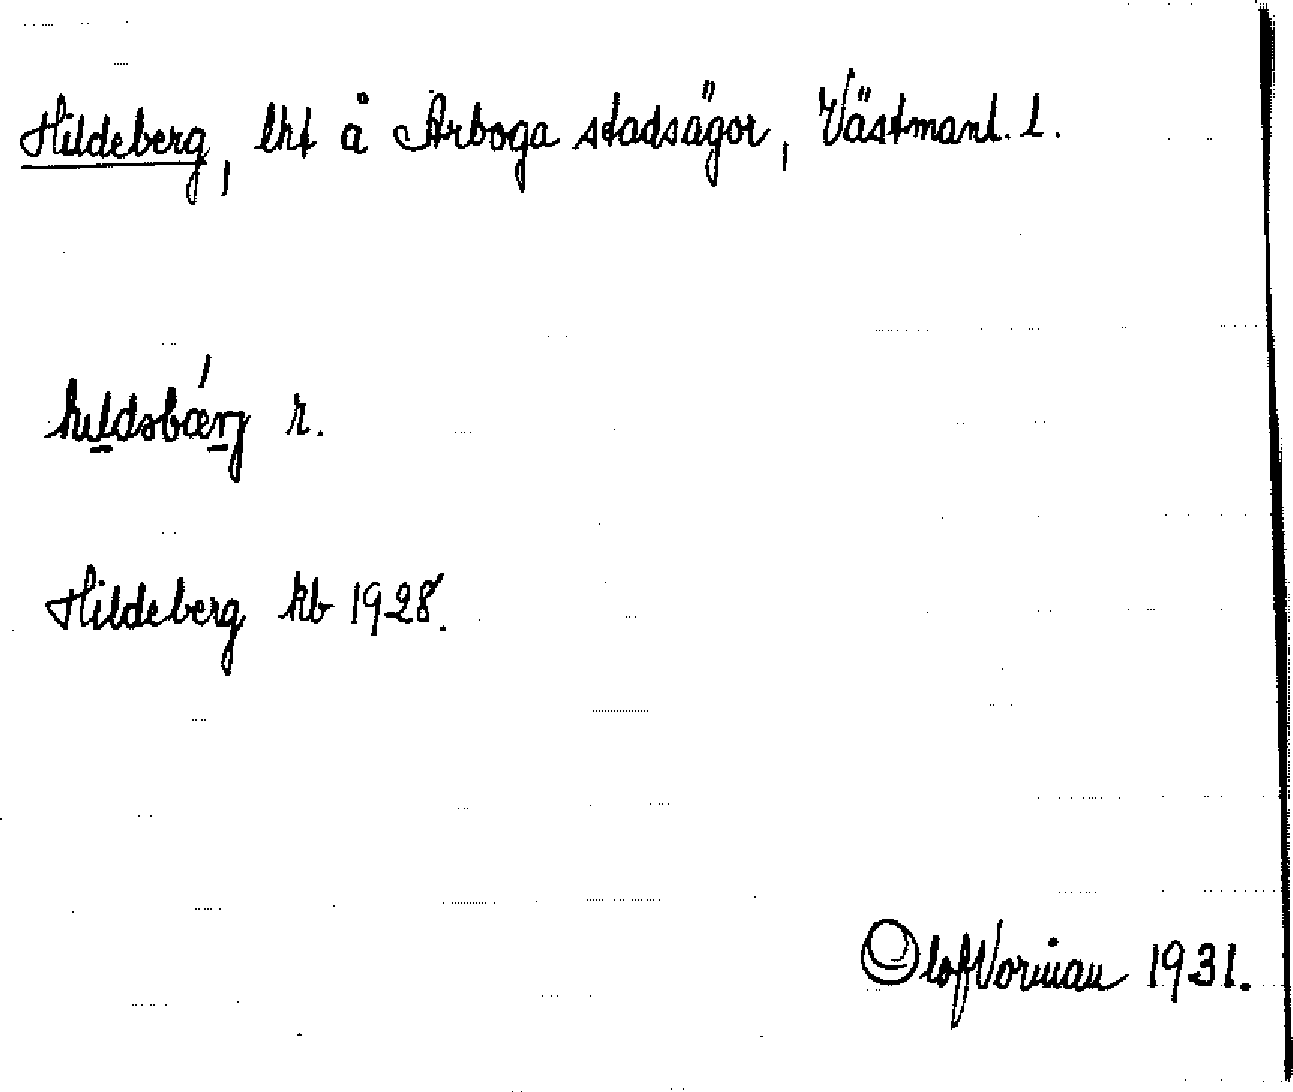 Hildeberg, lht å Arboga stadsägor, Västmanl. l.
hıldəbærj r.
Hildeberg kb 1928.
Olof Vorman 1931.